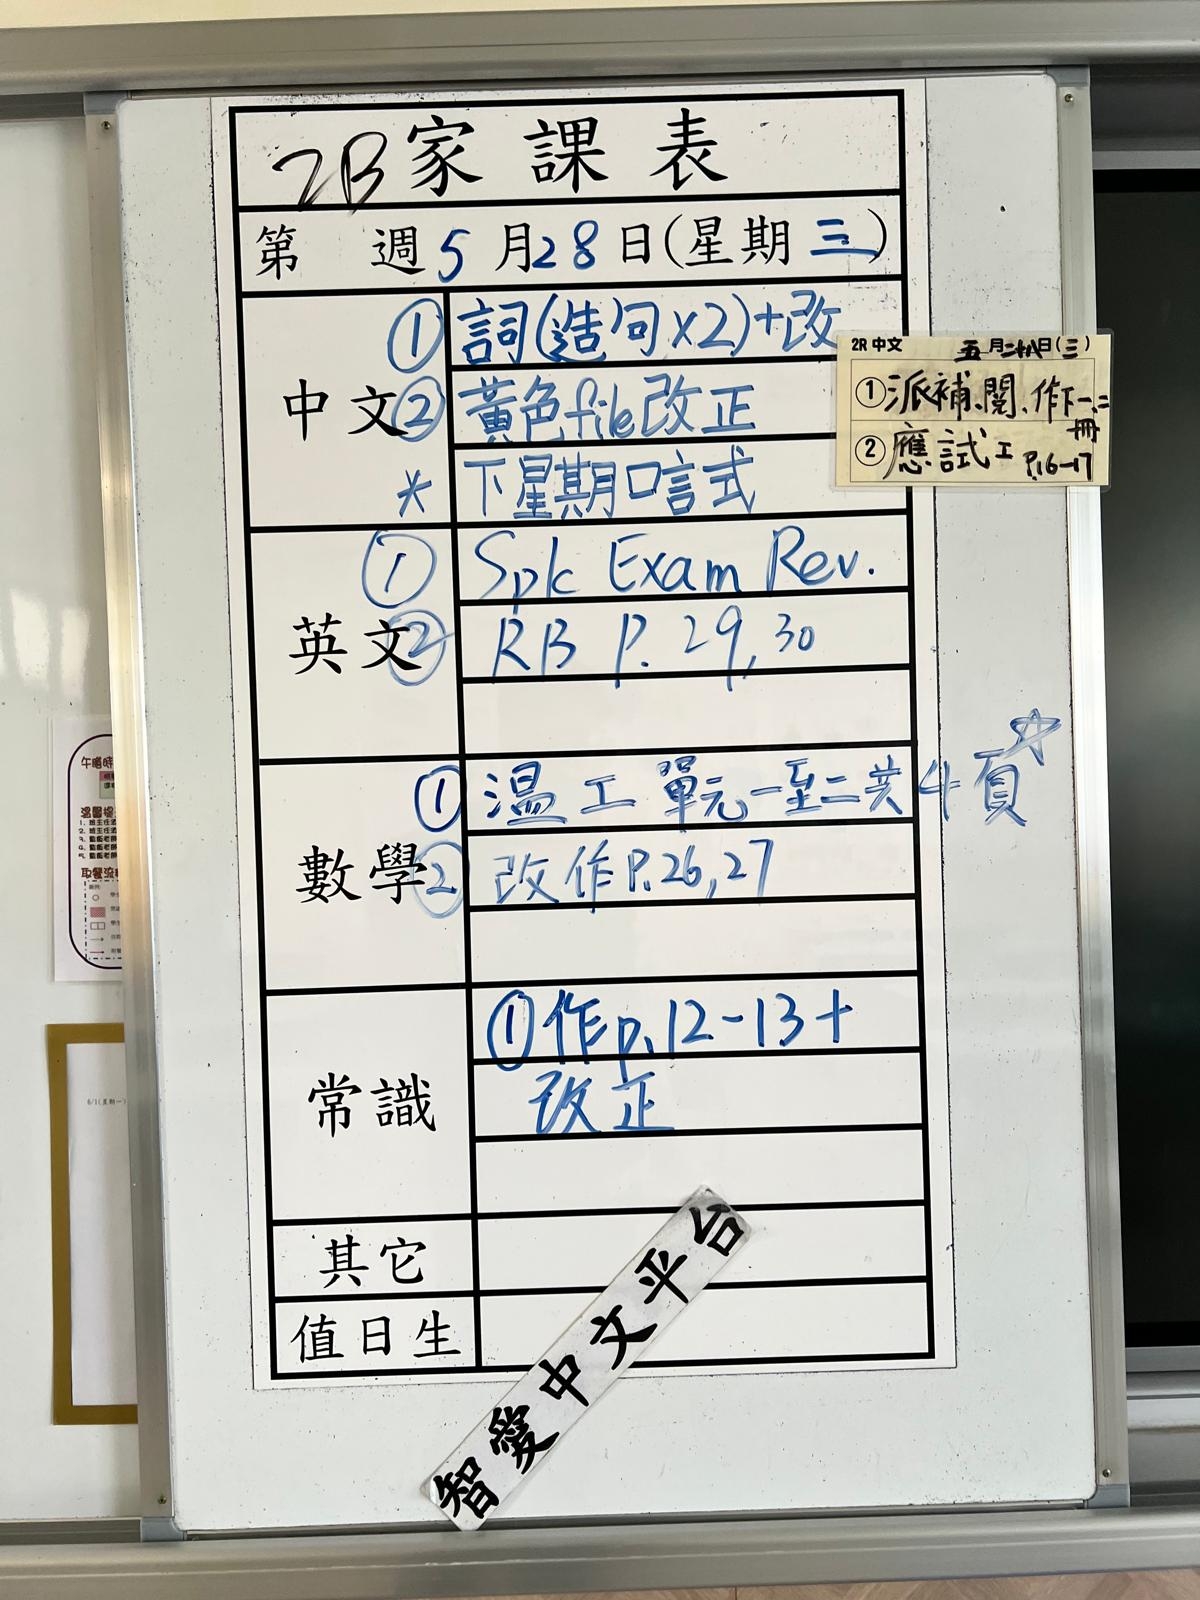 2B家課表
第 週5月28日(星期三)
中文
① 詞(造句x2)+改
② 黃色file改正
* 下星期口言式
2R 中文 五月二十八日(三)
① 派補、閱、作下一、二冊
② 應試工 P.16-17
英文
① Spk Exam Rev.
② RB P. 29, 30
數學
① 溫工單元一至二共4頁☆
② 改作P.26,27
常識
① 作p.12-13+
改正
其它
值日生
智愛中文平台
午膳時
取餐流
6/1(星期一)